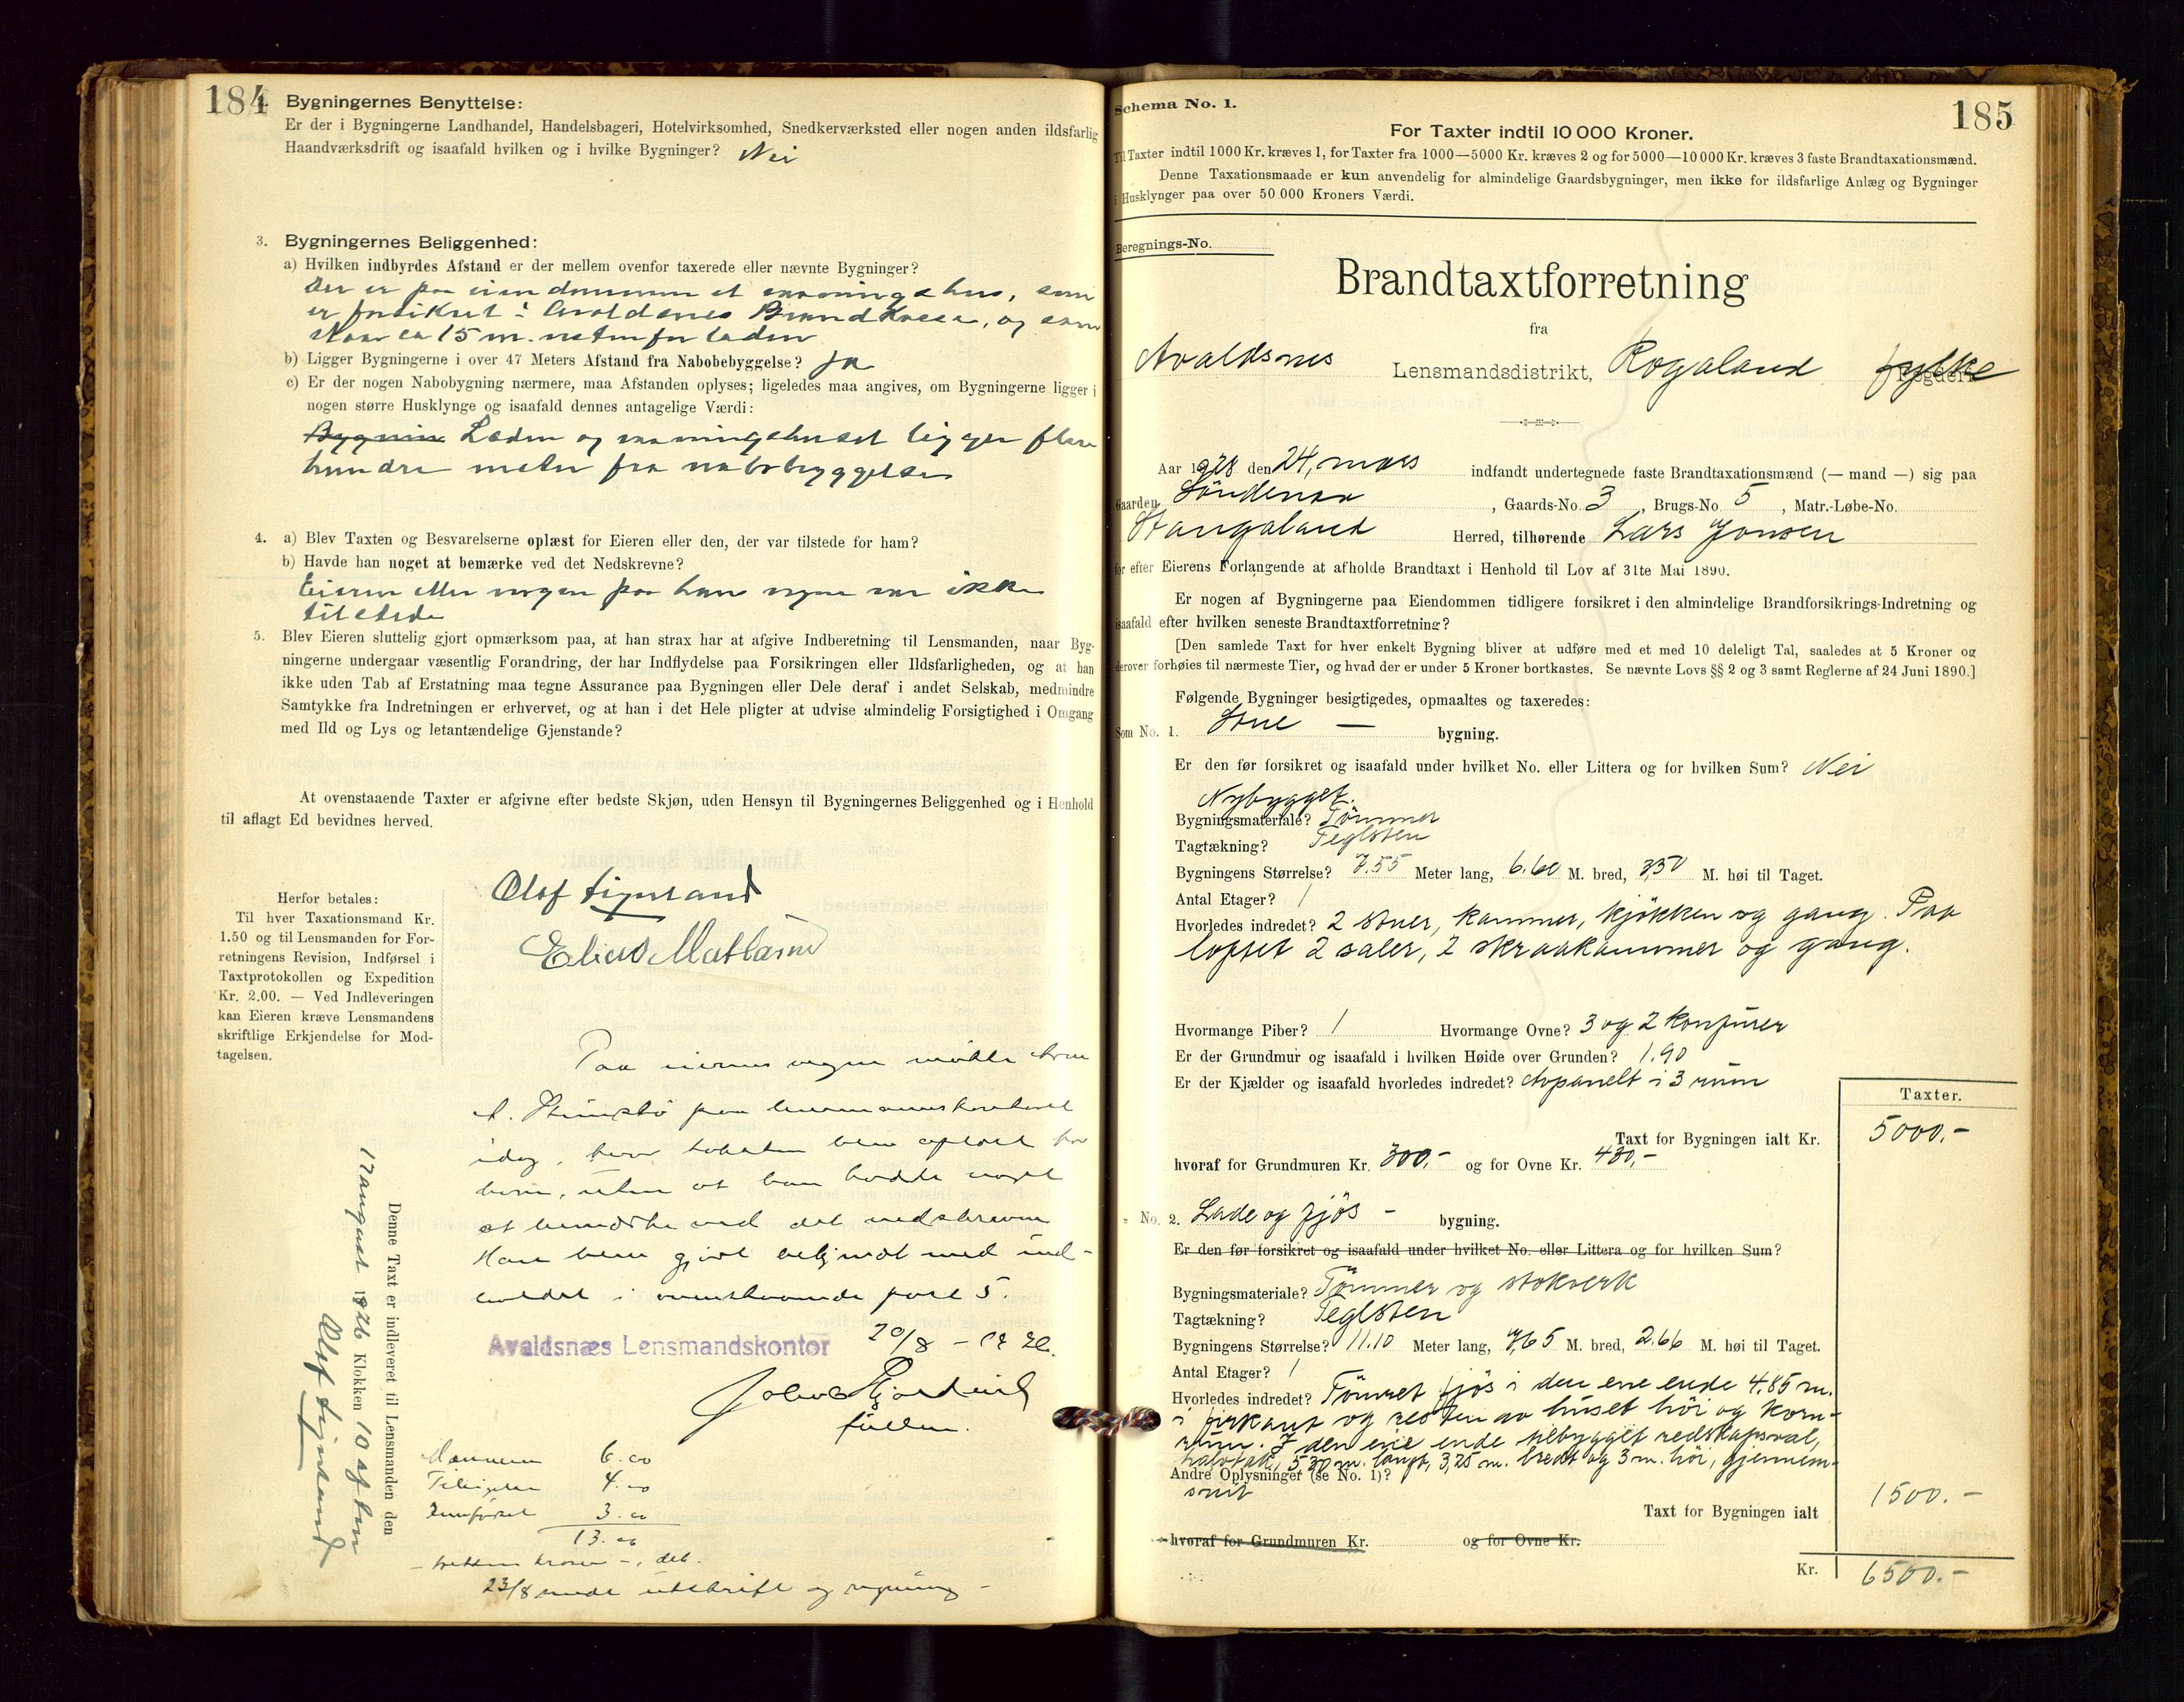 184
Bygningernes Benyttelse:
Er der i Bygningerne Landhandel, Handelsbageri, Hotelvirksomhed, Snedkerværksted eller nogen anden ildsfarlig
Haandværksdrift og isaafald hvilken og i hvilke Bygninger? Nei
3. Bygningernes Beliggenhed:
a) Hvilken indbyrdes Afstand er der mellem ovenfor taxerede eller nævnte Bygninger?
Der er paa eiendommen et vaaningshus, som
er forsikret i Avaldsnes Brandkasse, og som
staar ca 15 m. for laden
b) Ligger Bygningerne i over 47 Meters Afstand fra Nabobebyggelse? Ja
c) Er der nogen Nabobygning nærmere, maa Afstanden oplyses; ligeledes maa angives, om Bygningerne ligger i
nogen større Husklynge og isaafald dennes antagelige Værdi:
Bygnin Laden og vaaningshuset ligger flere
hundre meter fra nabobyggelse
4. a) Blev Taxten og Besvarelserne oplæst for Eieren eller den, der var tilstede for ham?
b) Havde han noget at bemærke ved det Nedskrevne?
Eieren eller nogen paa hans vegne var ikke
tilstede
5. Blev Eieren sluttelig gjort opmærksom paa, at han strax har at afgive Indberetning til Lensmanden, naar Byg-
ningerne undergaar væsentlig Forandring, der har Indflydelse paa Forsikringen eller Ildsfarligheden, og at han
ikke uden Tab af Erstatning maa tegne Assurance paa Bygningen eller Dele deraf i andet Selskab, medmindre
Samtykke fra Indretningen er erhvervet, og at han i det Hele pligter at udvise almindelig Forsigtighed i Omgang
med Ild og Lys og letantændelige Gjenstande?
At ovenstaaende Taxter er afgivne efter bedste Skjøn, uden Hensyn til Bygningernes Beliggenhed og i Henhold
til aflagt Ed bevidnes herved.
Olof
Elias
Herfor betales:
Til hver Taxationsmand Kr.
1.50 og til Lensmanden for For-
retningens Revision, Indførsel i
Taxtprotokollen og Expedition
Kr. 2.00. — Ved Indleveringen
kan Eieren kræve Lensmandens
skriftlige Erkjendelse for Mod-
tagelsen.
Paa eierens vegne møtte
paa lensmannskontoret
idag, hvor taksten blev oplæst for
ham, uten at han hadde noget
at bemerke ved det nedskrevne
Han blev gjort bekjendt med ind-
holdet i ovenstaaende post 5.
Avaldsnæs Lensmandskontor 20/8 – 1926.
fullm.
Denne Taxt er indleveret til Lensmanden den
17 august 1926 Klokken 10 af
Olof
6.00
4.00
3.00
13.00
– tretten kroner –,
23/8 utskrift og regning –
185
Schema No. 1.
For Taxter indtil 10 000 Kroner.
Til Taxter indtil 1000 Kr. kræves 1, for Taxter fra 1000—5000 Kr. kræves 2 og for 5000—10 000 Kr. kræves 3 faste Brandtaxationsmænd.
Denne Taxationsmaade er kun anvendelig for almindelige Gaardsbygninger, men ikke for ildsfarlige Anlæg og Bygninger
i Husklynger paa over 50 000 Kroners Værdi.
Beregnings-No.
Brandtaxtforretning
fra
Avaldsnes Lensmandsdistrikt, Rogaland fylke
Aar 1928 den 24, mars indfandt undertegnede faste Brandtaxationsmænd (— mand —) sig paa
Gaarden Søndenaa, Gaards-No. 3, Brugs-No. 5, Matr.-Løbe-No.
Stangaland Herred, tilhørende Lars Jonsen
for efter Eierens Forlangende at afholde Brandtaxt i Henhold til Lov af 31te Mai 1890.
Er nogen af Bygningerne paa Eiendommen tidligere forsikret i den almindelige Brandforsikrings-Indretning og
isaafald efter hvilken seneste Brandtaxtforretning?
[Den samlede Taxt for hver enkelt Bygning bliver at udføre med et med 10 deleligt Tal, saaledes at 5 Kroner og
derover forhøies til nærmeste Tier, og hvad der er under 5 Kroner bortkastes. Se nævnte Lovs §§ 2 og 3 samt Reglerne af 24 Juni 1890.]
Følgende Bygninger besigtigedes, opmaaltes og taxeredes:
Som No. 1. Stue — bygning.
Er den før forsikret og isaafald under hvilket No. eller Littera og for hvilken Sum? Nei
Nybygget.
Bygningsmateriale? Tömmer
Tagtækning? Teglsten
Bygningens Størrelse? 7.55 Meter lang, 6.60 M. bred, 3,50 M. høi til Taget.
Antal Etager? 1
Hvorledes indredet? 2 stuer, kammer, kjøkken og gang. Paa
loftet 2 saler, 2 skraakammer og gang.
Hvormange Piber? 1 Hvormange Ovne? 3 og 2 komfurer
Er der Grundmur og isaafald i hvilken Høide over Grunden? 1.90
Er der Kjælder og isaafald hvorledes indredet? Avpanelt i 3 rum
Taxter.
Taxt for Bygningen ialt Kr. 5000.–
hvoraf for Grundmuren Kr. 300,– og for Ovne Kr. 480,–
" No. 2. Lade og fjös – bygning.
Er den før forsikret og isaafald under hvilket No. eller Littera og for hvilken Sum?
Bygningsmateriale? Tömmer og stokverk
Tagtækning? Teglsten
Bygningens Størrelse? 11.10 Meter lang, 7,65 M. bred, 2.66 M. høi til Taget.
Antal Etager? 1
Hvorledes indredet? Tömret fjös i den ene ende 4.85 m.
i firkant og resten av huset höi og korn-
rum. I den ene ende tilbygget redskapsval,
halvtak, 5.30 m. langt, 3,25 m. bredt og 3 m. höi, gjennem-
Andre Oplysninger (se No. 1)?
snit
Taxt for Bygningen ialt 1500.–
hvoraf for Grundmuren Kr. og for Ovne Kr.
Kr. 6500.–